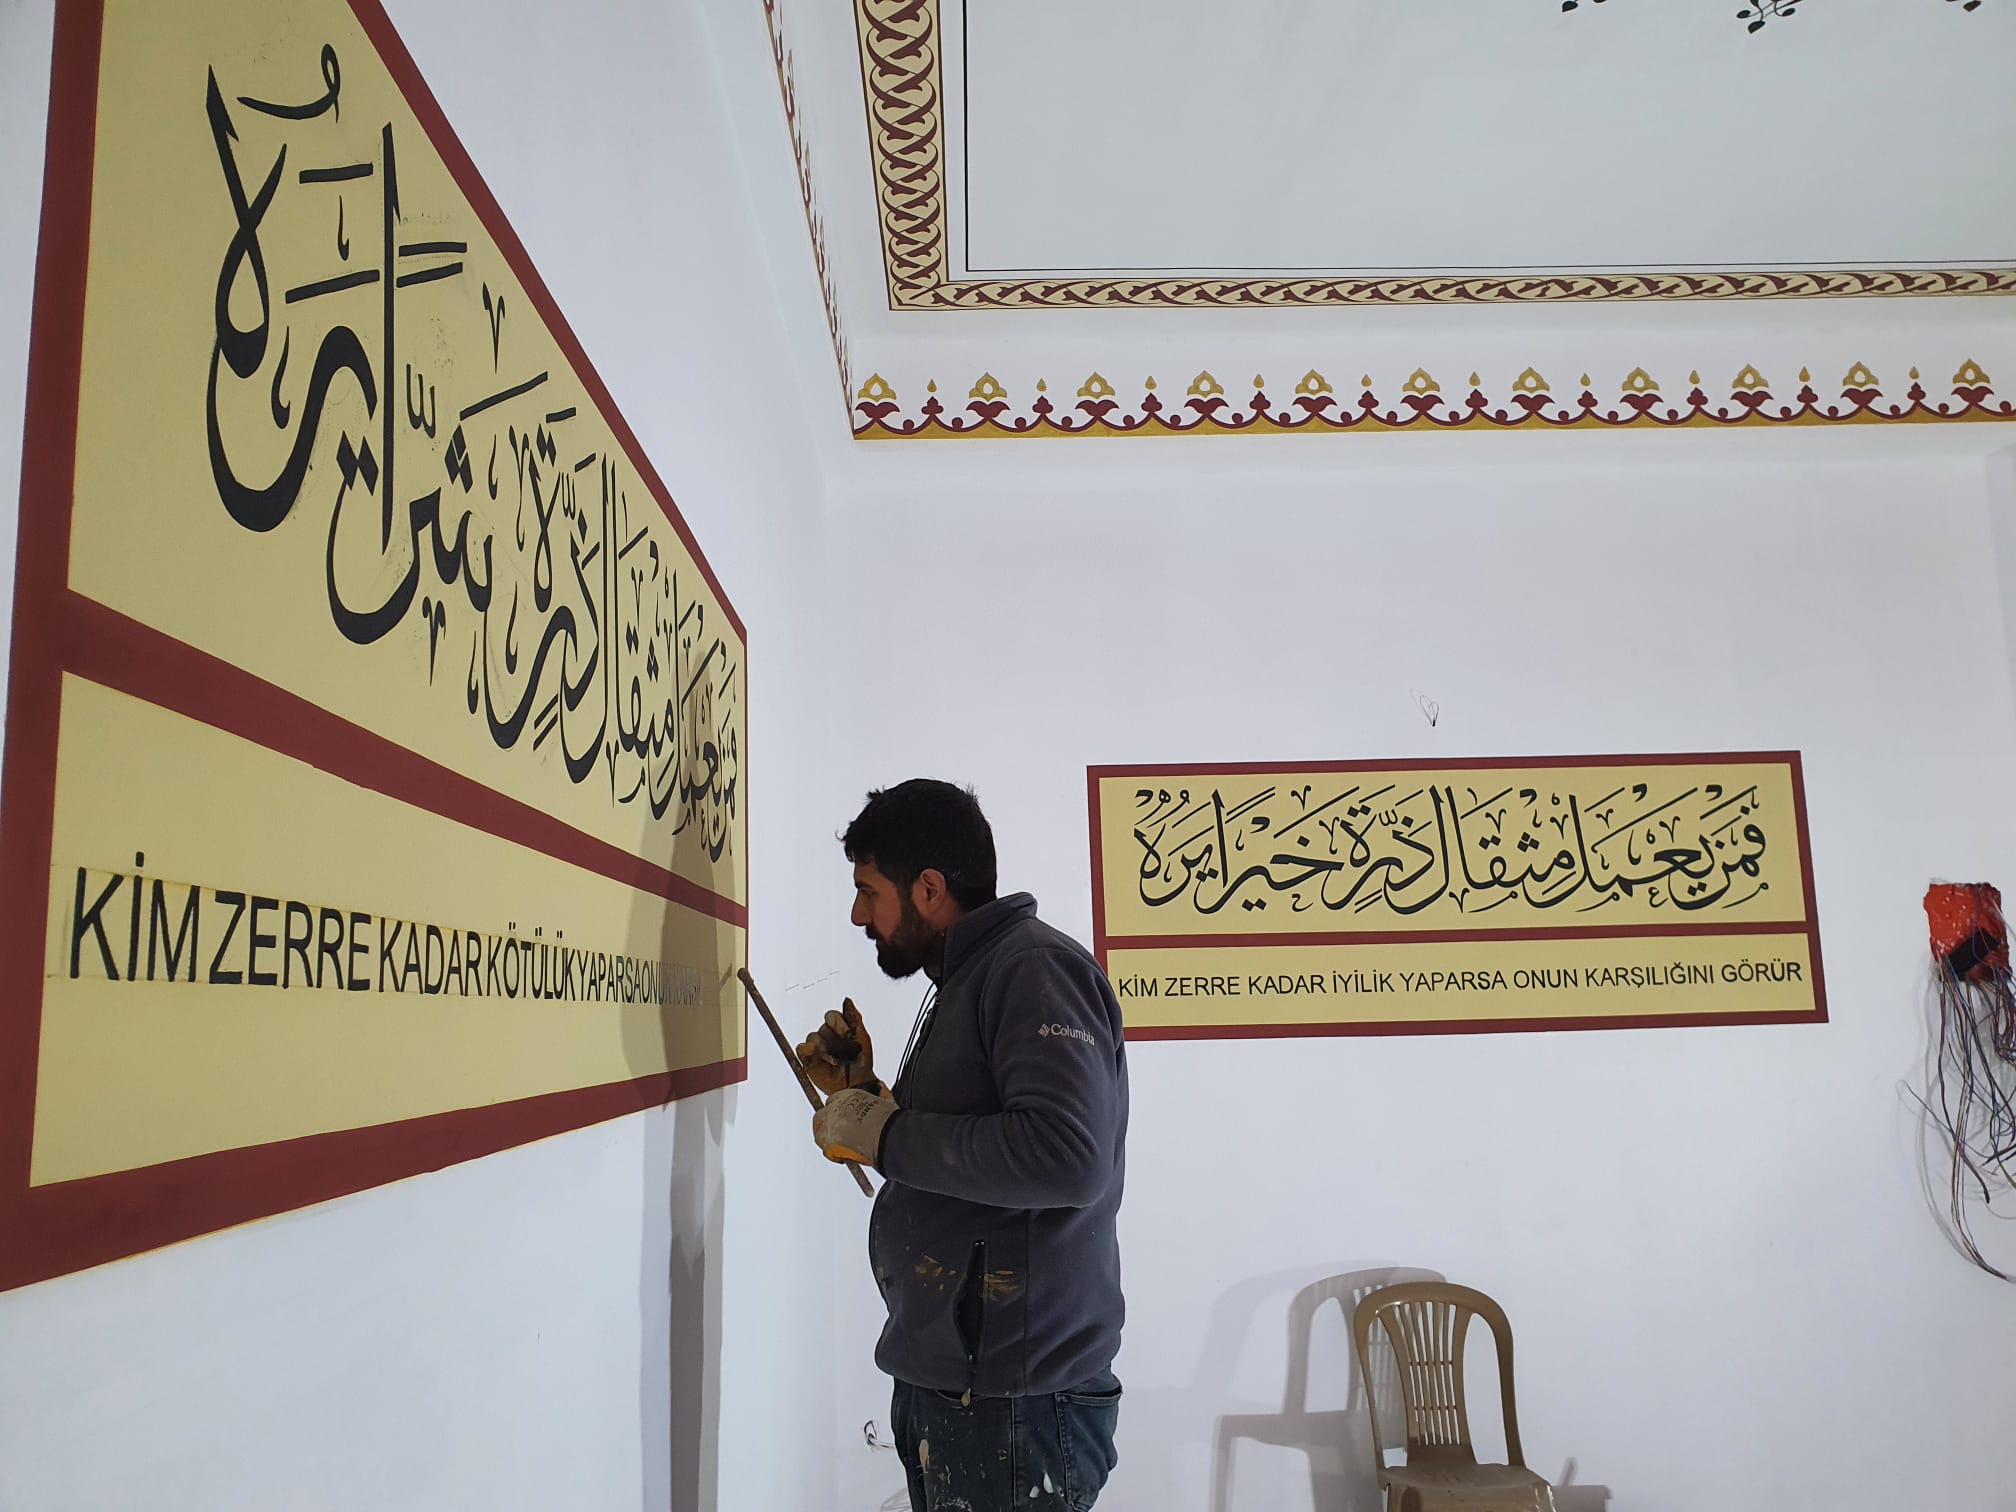 وَمَنْ يَعْمَلْ مِثْقَالَ ذَرَّةٍ شَرًّا يَرَهُ
KİM ZERRE KADAR KÖTÜLÜK YAPARSA ONUN KARŞI
فَمَنْ يَعْمَلْ مِثْقَالَ ذَرَّةٍ خَيْرًا يَرَهُ
KİM ZERRE KADAR İYİLİK YAPARSA ONUN KARŞILIĞINI GÖRÜR
Columbia